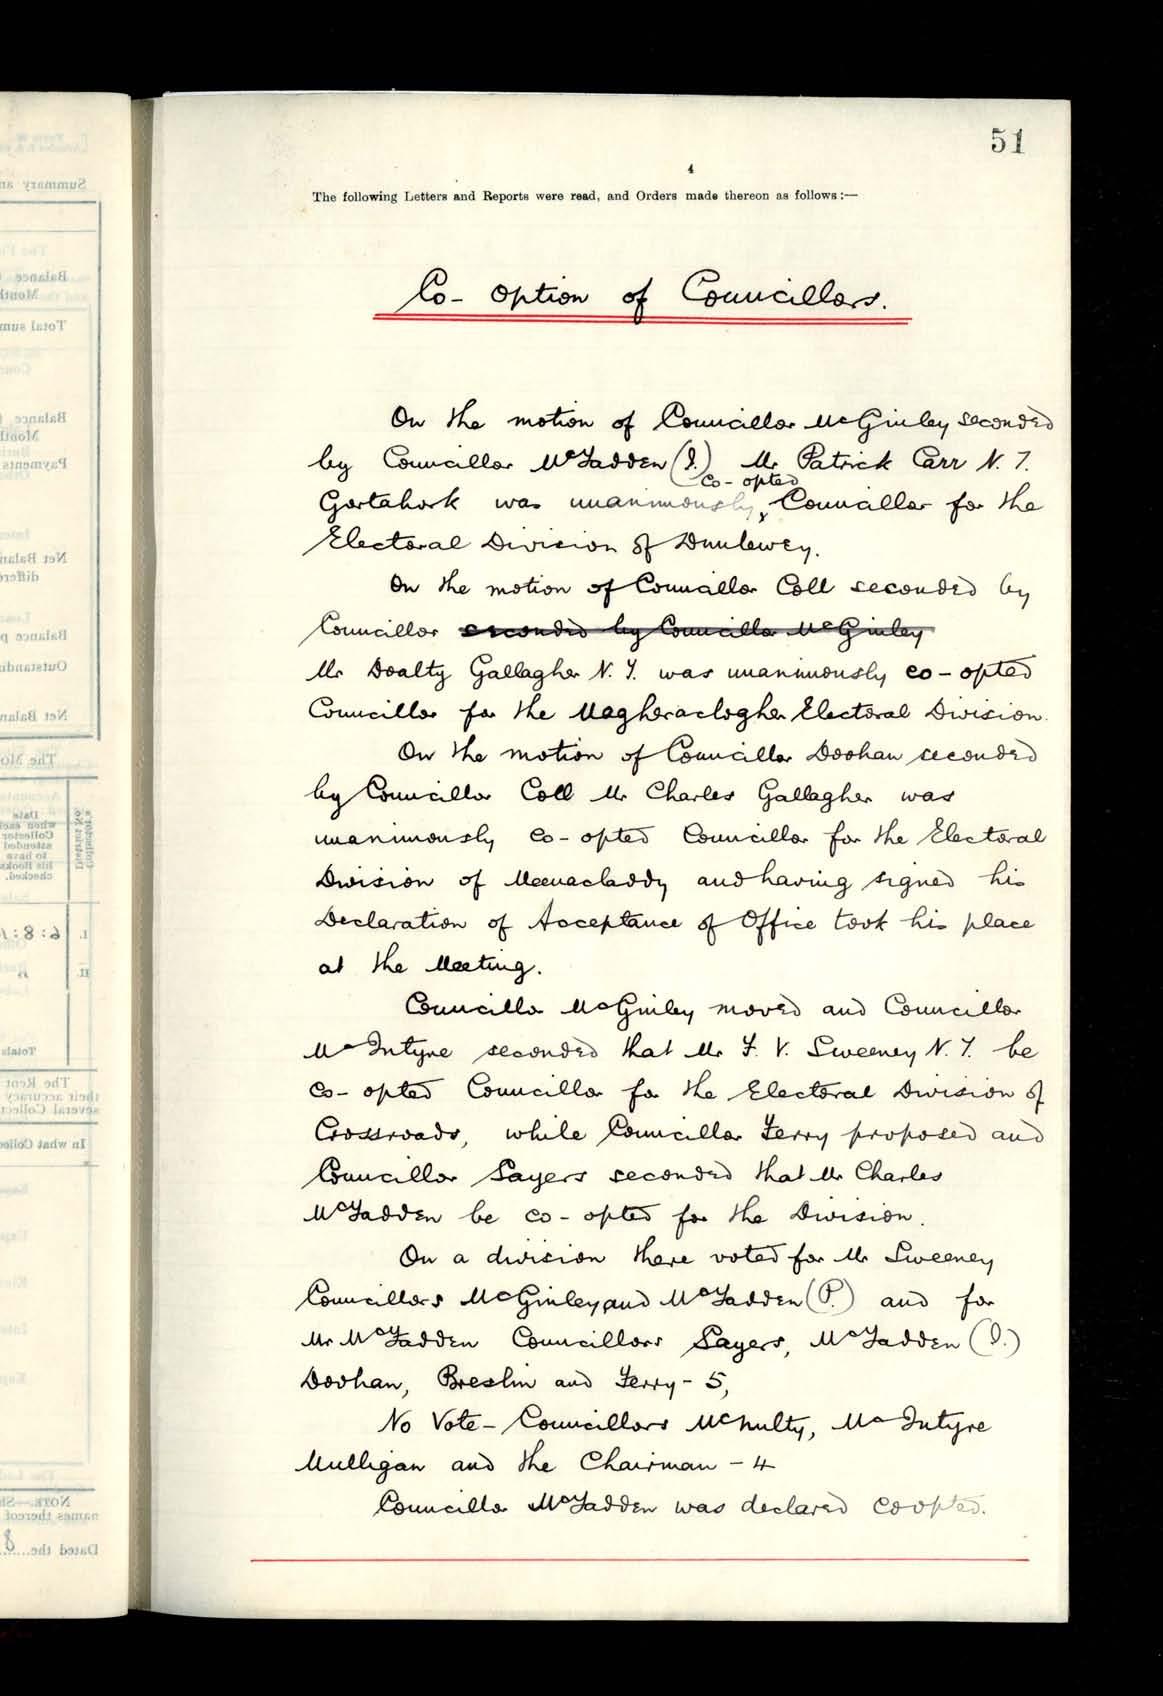 51
4
The following Letters and Reports were read, and Orders made thereon as follows :—
Co- option of Councillors.
On the motion of Councillor McGinley seconded
by Councillor McFadden (I.) Mr Patrick Carr N. T.
co- opted
Gortahork was unanimously x Councillor for the
Electoral Division of Dunlewey.
On the motion of Councillor Coll seconded by
Councillor seconded by Councillor McGinley
Mr Doalty Gallagher N. T. was unanimously co-opted
Councillor for the Magheraclogher Electoral Division.
On the motion of Councillor Doohan seconded
by Councillor Coll Mr Charles Gallagher was
unanimously co-opted Councillor for the Electoral
Division of Meenacladdy and having signed his
Declaration of Acceptance of Office took his place
at the Meeting.
Councillor McGinley moved and Councillor
McIntyre seconded that Mr F. V. Sweeney N. T. be
co-opted Councillor for the Electoral Division of
Crossroads, while Councillor Ferry proposed and
Councillor Sayers seconded that Mr Charles
McFadden be co-opted for the Division.
On a division there voted for Mr Sweeney
Councillors McGinley and McFadden (P.) and for
Mr McFadden Councillors Sayers, McFadden (I.)
Doohan, Breslin and Ferry - 5,
No Vote - Councillors McNulty, McIntyre
Mulligan and the Chairman - 4
Councillor McFadden was declared coopted.